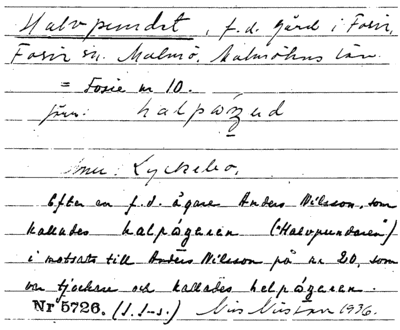 Halvpundet, f.d. gård i Fosie,
Fosie sn. Malmö, Malmöhus län.
= Fosie nr 10.
jfr:
Lyckebo.
Efter en f.d. ägare Anders Nilsson, som
kallades halpågaren ("Halvpundaren")
i motsats till Anders Nilsson på nr 20, som
var tjockare och kallades helpågaren.
Nr 5726. (S.S-s.) Nils 1936.